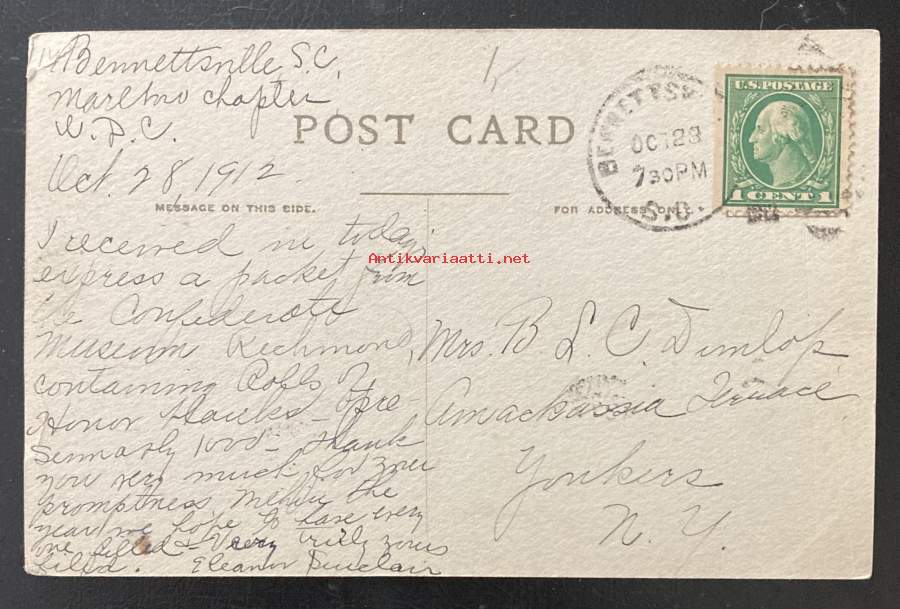 Bennettsville S.C,
Marlboro Chapter
U.D.C.
Oct. 28, 1912
POST CARD
BENNETTSV
OCT 28
730PM
S.C.
U.S. POSTAGE
1 CENT 1
MESSAGE ON THIS SIDE.
FOR ADDRESS ONLY.
I received in today's
express a packet from
the Confederate
Museum Richmond,
containing Rolls of
Honor blanks - pre-
sumably 1000 - thank
you very much for your
promptness. Within the
year we hope to have every
one filled & Very truly yours
filed. Eleanor Sinclair
Antikvariaatti.net
Mrs. B L. C. Dunlop
Amackassin Terrace
Yonkers
N. Y.